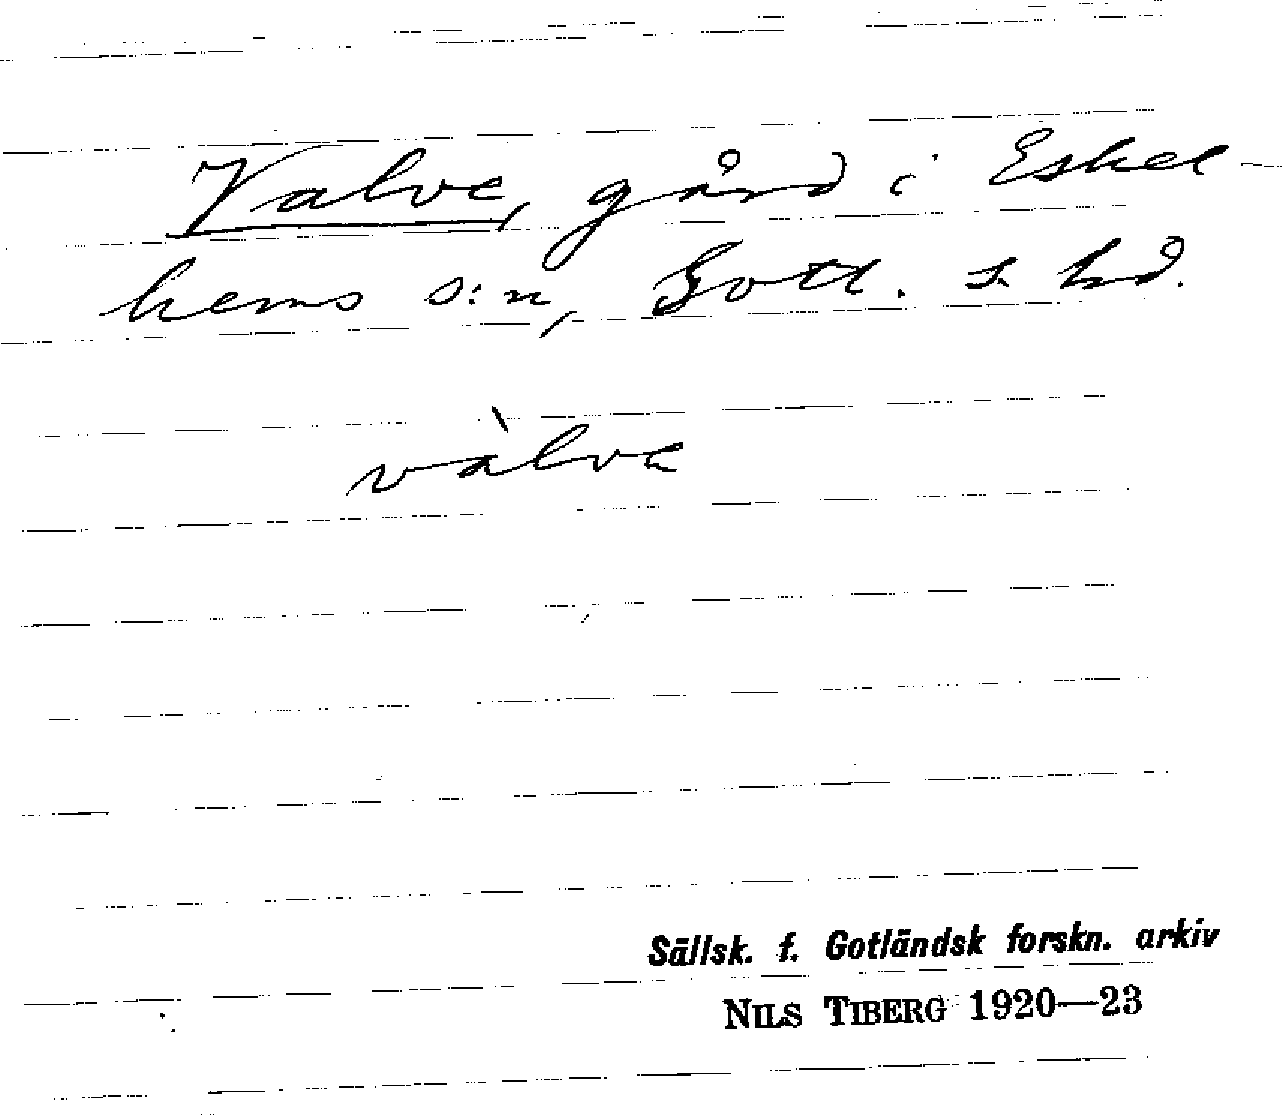 Valve, gård i Eskel
hems s:n, Gotl. s. hd.
vàlve
Sällsk. f. Gotländsk forskn. arkiv
NILS TIBERG 1920—23